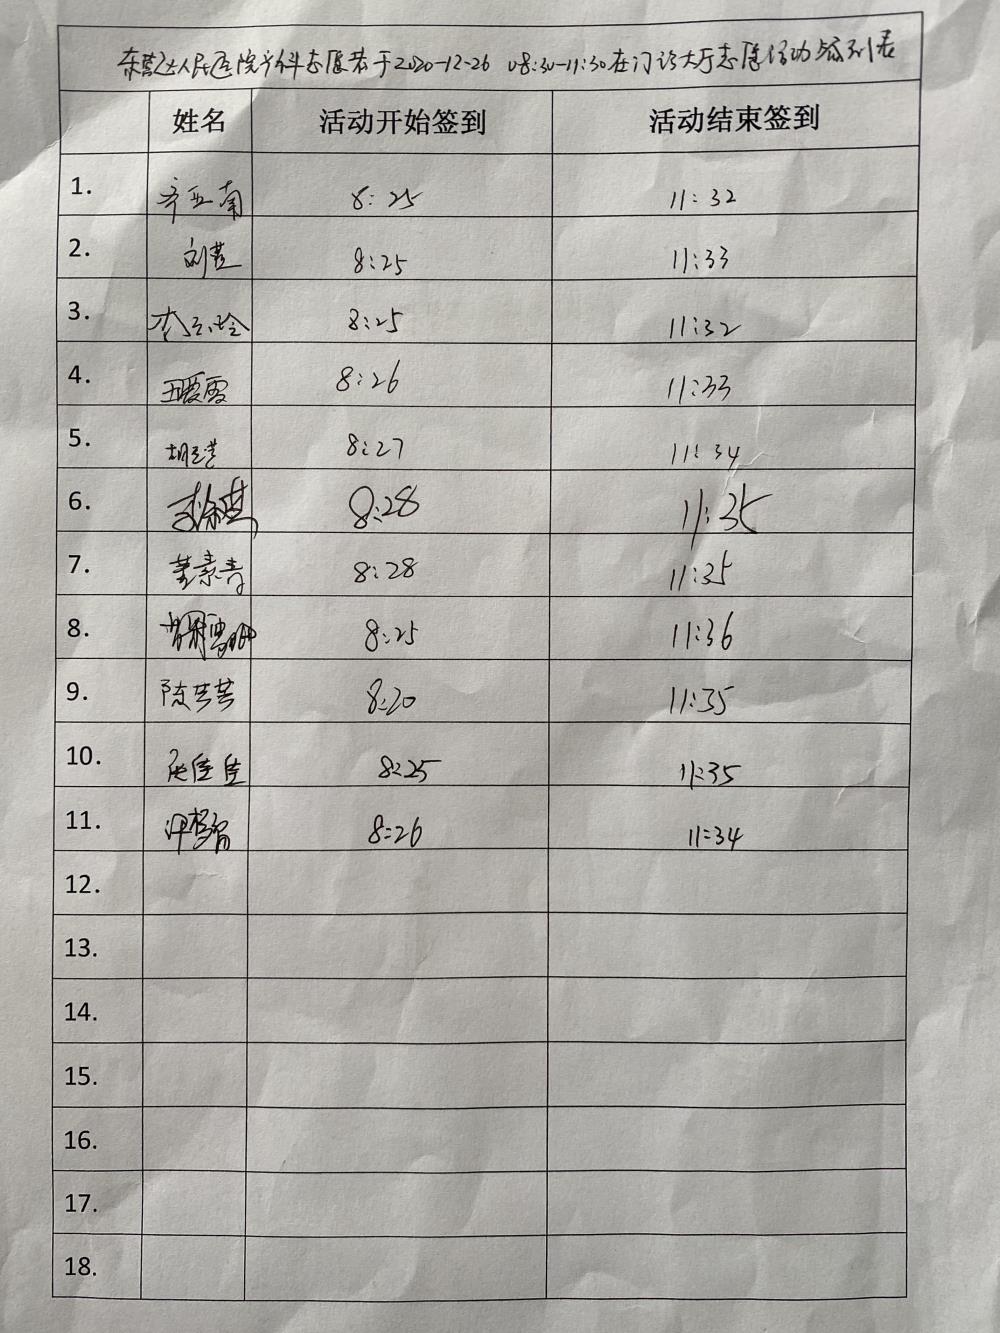 东营区人民医院产科志愿者于2020-12-26 08:30-11:30在门诊大厅志愿活动签到表
姓名 活动开始签到 活动结束签到
1. 齐亚南 8:25 11:32
2. 8:25 11:33
3. 8:25 11:32
4. 王爱霞 8:26 11:33
5. 8:27 11:34
6. 8:28 11:35
7. 董素青 8:28 11:35
8. 8:25 11:36
9. 8:20 11:35
10. 8:25 11:35
11. 8:26 11:34
12.
13.
14.
15.
16.
17.
18.